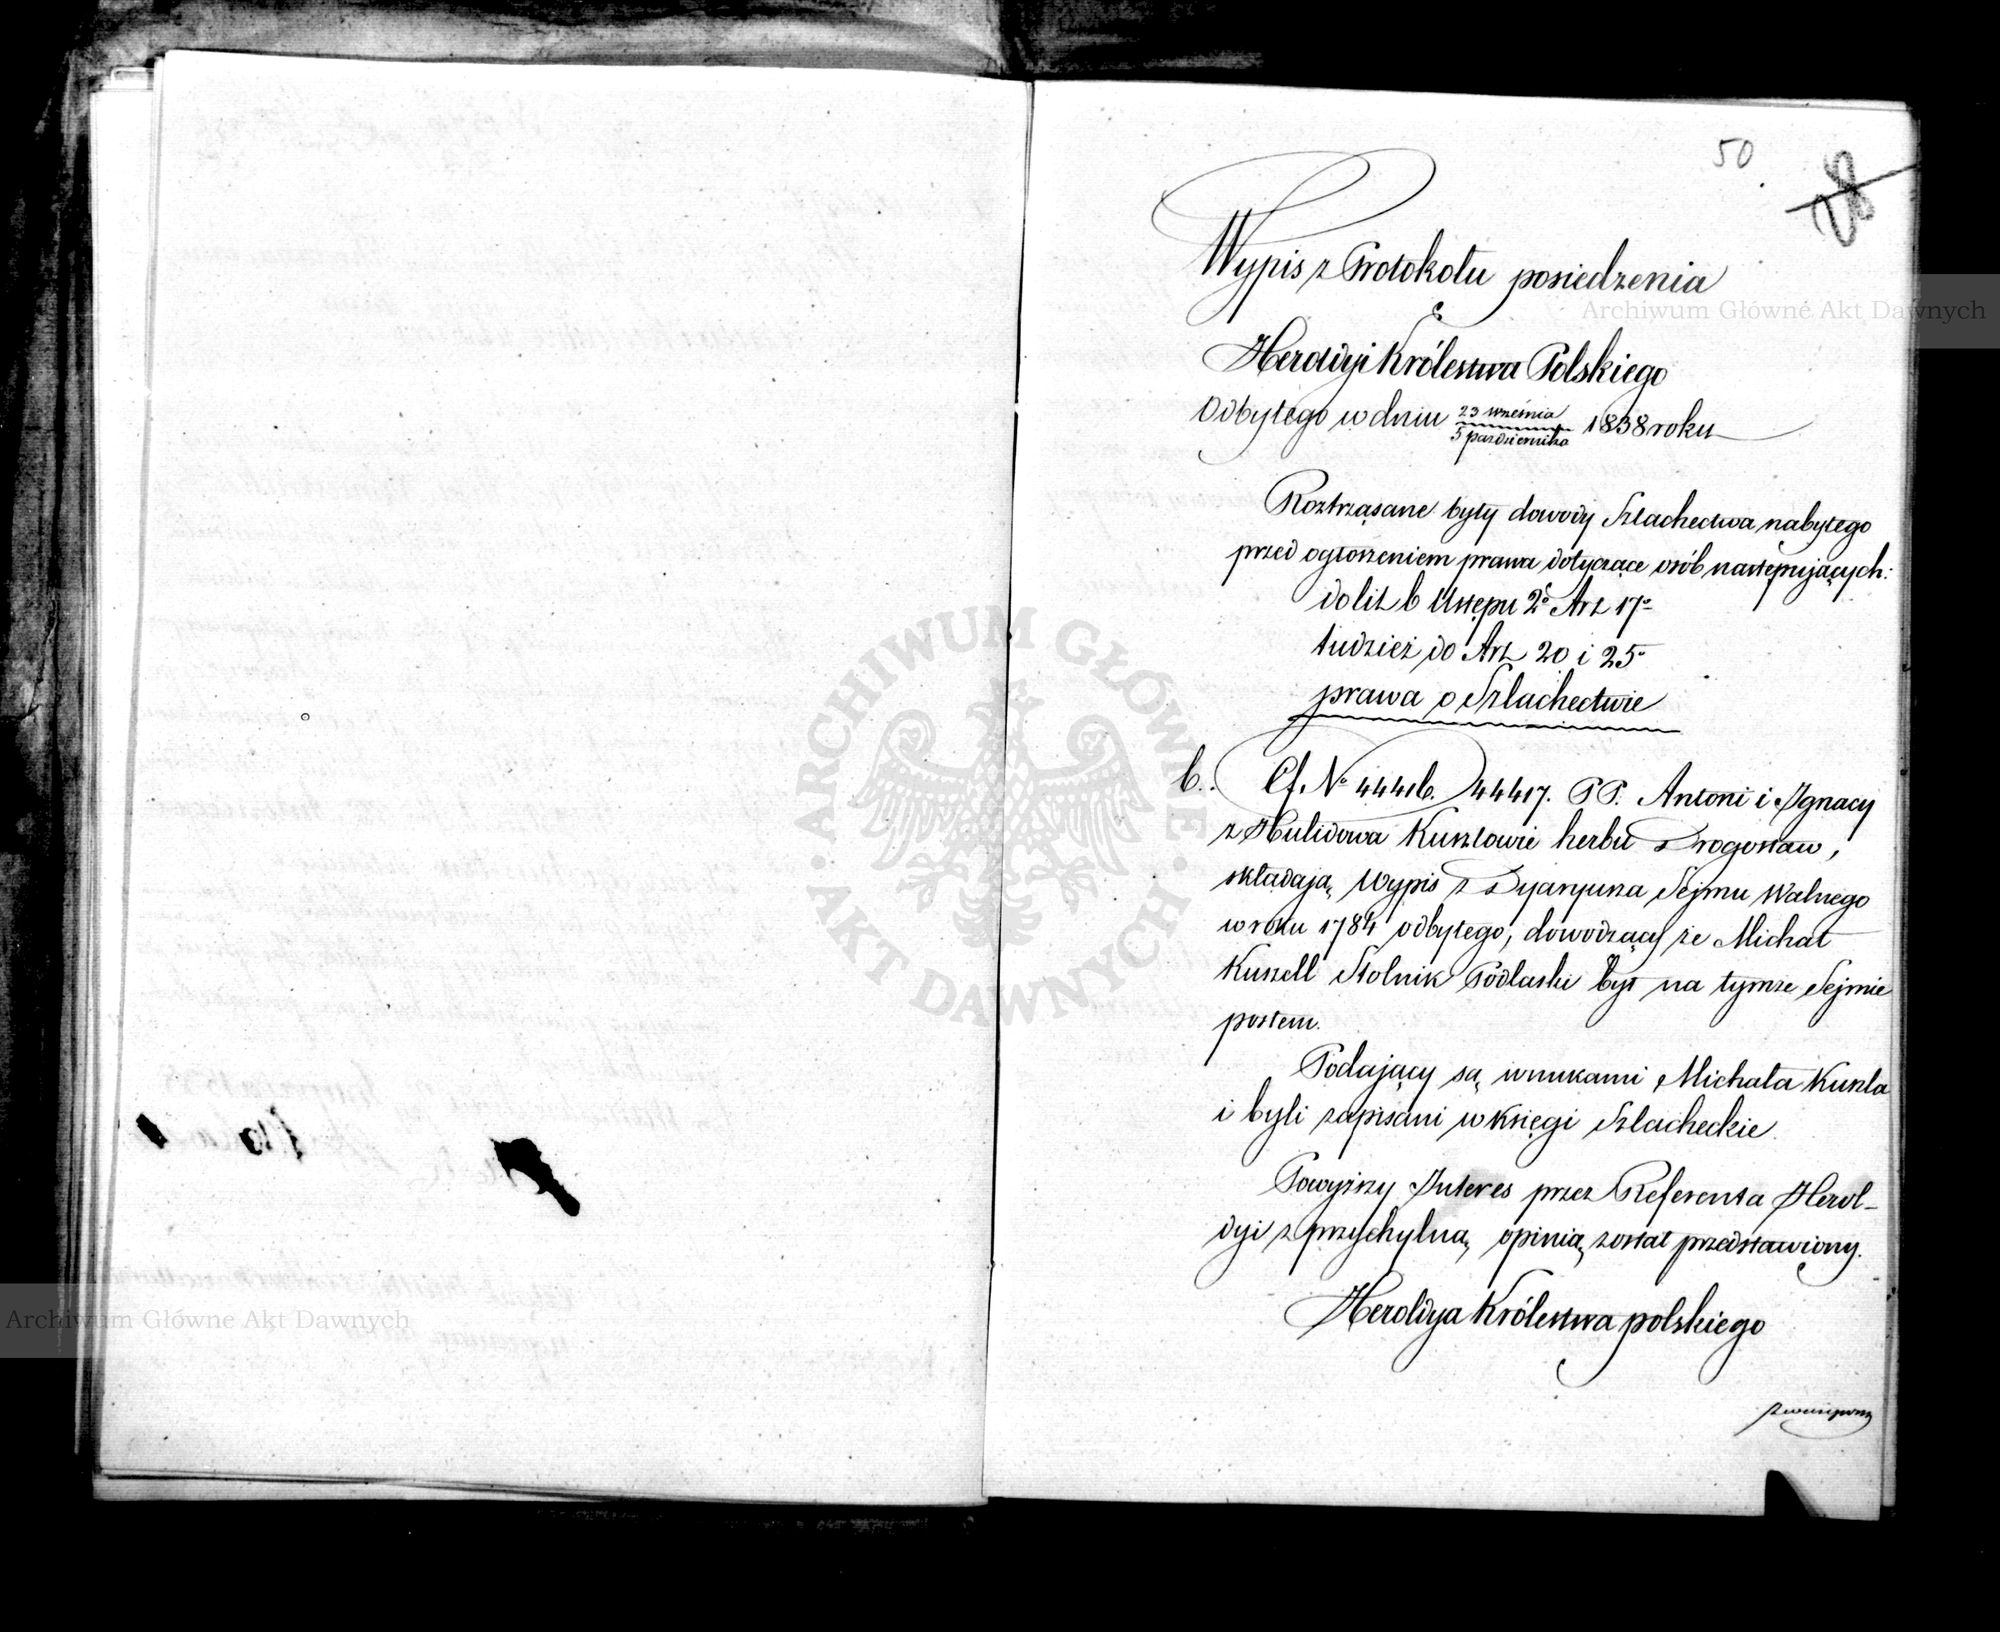 50.
28
Wypis z Protokołu posiedzenia
Heroldyi Królestwa Polskiego
Odbytego w dniu 23 września / 5 pazdziernika 1838 roku
Roztrząsane były dowody Szlachectwa nabytego
przed ogłoszeniem prawa dotyczące osób następujących:
do lit b Ustępu 2o Art 17o
tudzież do Art 20 i 25o
prawa o Szlachectwie
b. Cf. No 44416. 44417. PP. Antoni i Ignacy
z Hulidowa Kuszlowie herbu Drogosław,
składają Wypis z Dyaryusza Sejmu Walnego
w roku 1784 odbytego, dowodzący że Michał
Kuszell Stolnik Podlaski był na tymże Sejmie
posłem.
Podający są wnukami Michała Kuszla
i byli zapisani w Księgi Szlacheckie.
Powyższy Interes przez Referenta Herol-
dyi z przychylną opinią został przedstawiony.
Heroldya Królestwa polskiego
zważywszy
Archiwum Główne Akt Dawnych
Archiwum Główne Akt Dawnych
ARCHIWUM GŁÓWNE
AKT DAWNYCH